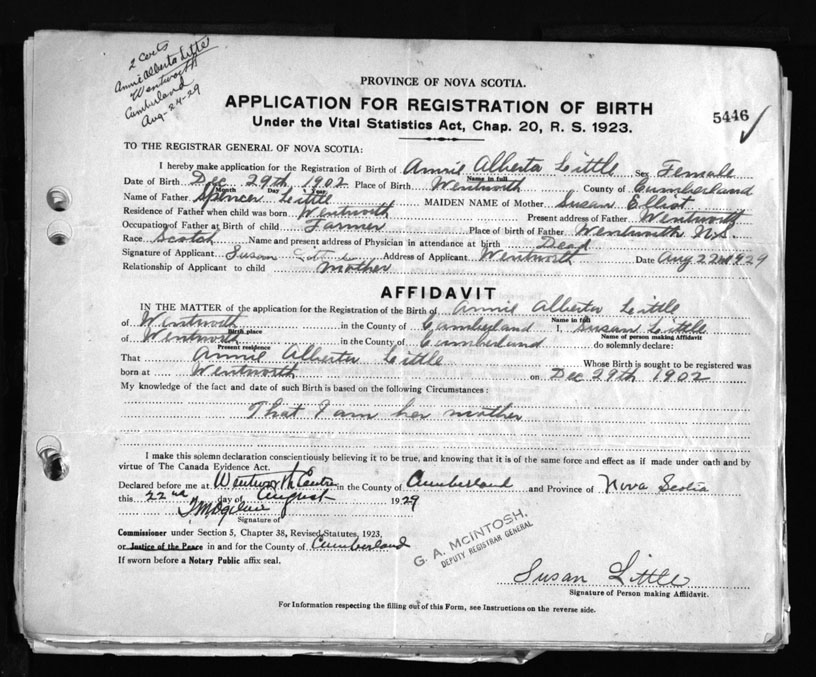 2 Certs
Annie Alberta Little
Wentworth
Cumberland
Aug-24-29
PROVINCE OF NOVA SCOTIA.
APPLICATION FOR REGISTRATION OF BIRTH
5446
Under the Vital Statistics Act, Chap. 20, R. S. 1923.
TO THE REGISTRAR GENERAL OF NOVA SCOTIA:
I hereby make application for the Registration of Birth of Annie Alberta Little Sex Female
Name in full
Date of Birth Dec 29th 1902 Place of Birth Wentworth County of Cumberland
Month Day Year
Name of Father Spencer Little MAIDEN NAME of Mother Susan Elliot
Residence of Father when child was born Wentworth Present address of Father Wentworth
Occupation of Father at Birth of child Farmer Place of birth of Father Wentworth N.S.
Race Scotch Name and present address of Physician in attendance at birth Dead
Signature of Applicant Susan Address of Applicant Wentworth Date Aug 22nd 1929
Relationship of Applicant to child mother
AFFIDAVIT
IN THE MATTER of the application for the Registration of the Birth of Annie Alberta Little
Name in full
of Wentworth in the County of Cumberland I, Susan Little
Birth place Name of person making Affidavit
of Wentworth in the County of Cumberland do solemnly declare:
Present residence
That Annie Alberta Little Whose Birth is sought to be registered was
born at Wentworth on Dec 29th 1902
My knowledge of the fact and date of such Birth is based on the following Circumstances:
That I am her mother
I make this solemn declaration conscientiously believing it to be true, and knowing that it is of the same force and effect as if made under oath and by
virtue of The Canada Evidence Act.
Declared before me at Wentworth Centre in the County of Cumberland and Province of Nova Scotia
this 22nd day of August 1929
Signature of
Commissioner under Section 5, Chapter 38, Revised Statutes, 1923,
or Justice of the Peace in and for the County of Cumberland
If sworn before a Notary Public affix seal.
G. A. McINTOSH,
DEPUTY REGISTRAR GENERAL
Susan Little
Signature of Person making Affidavit.
For Information respecting the filling out of this Form, see Instructions on the reverse side.